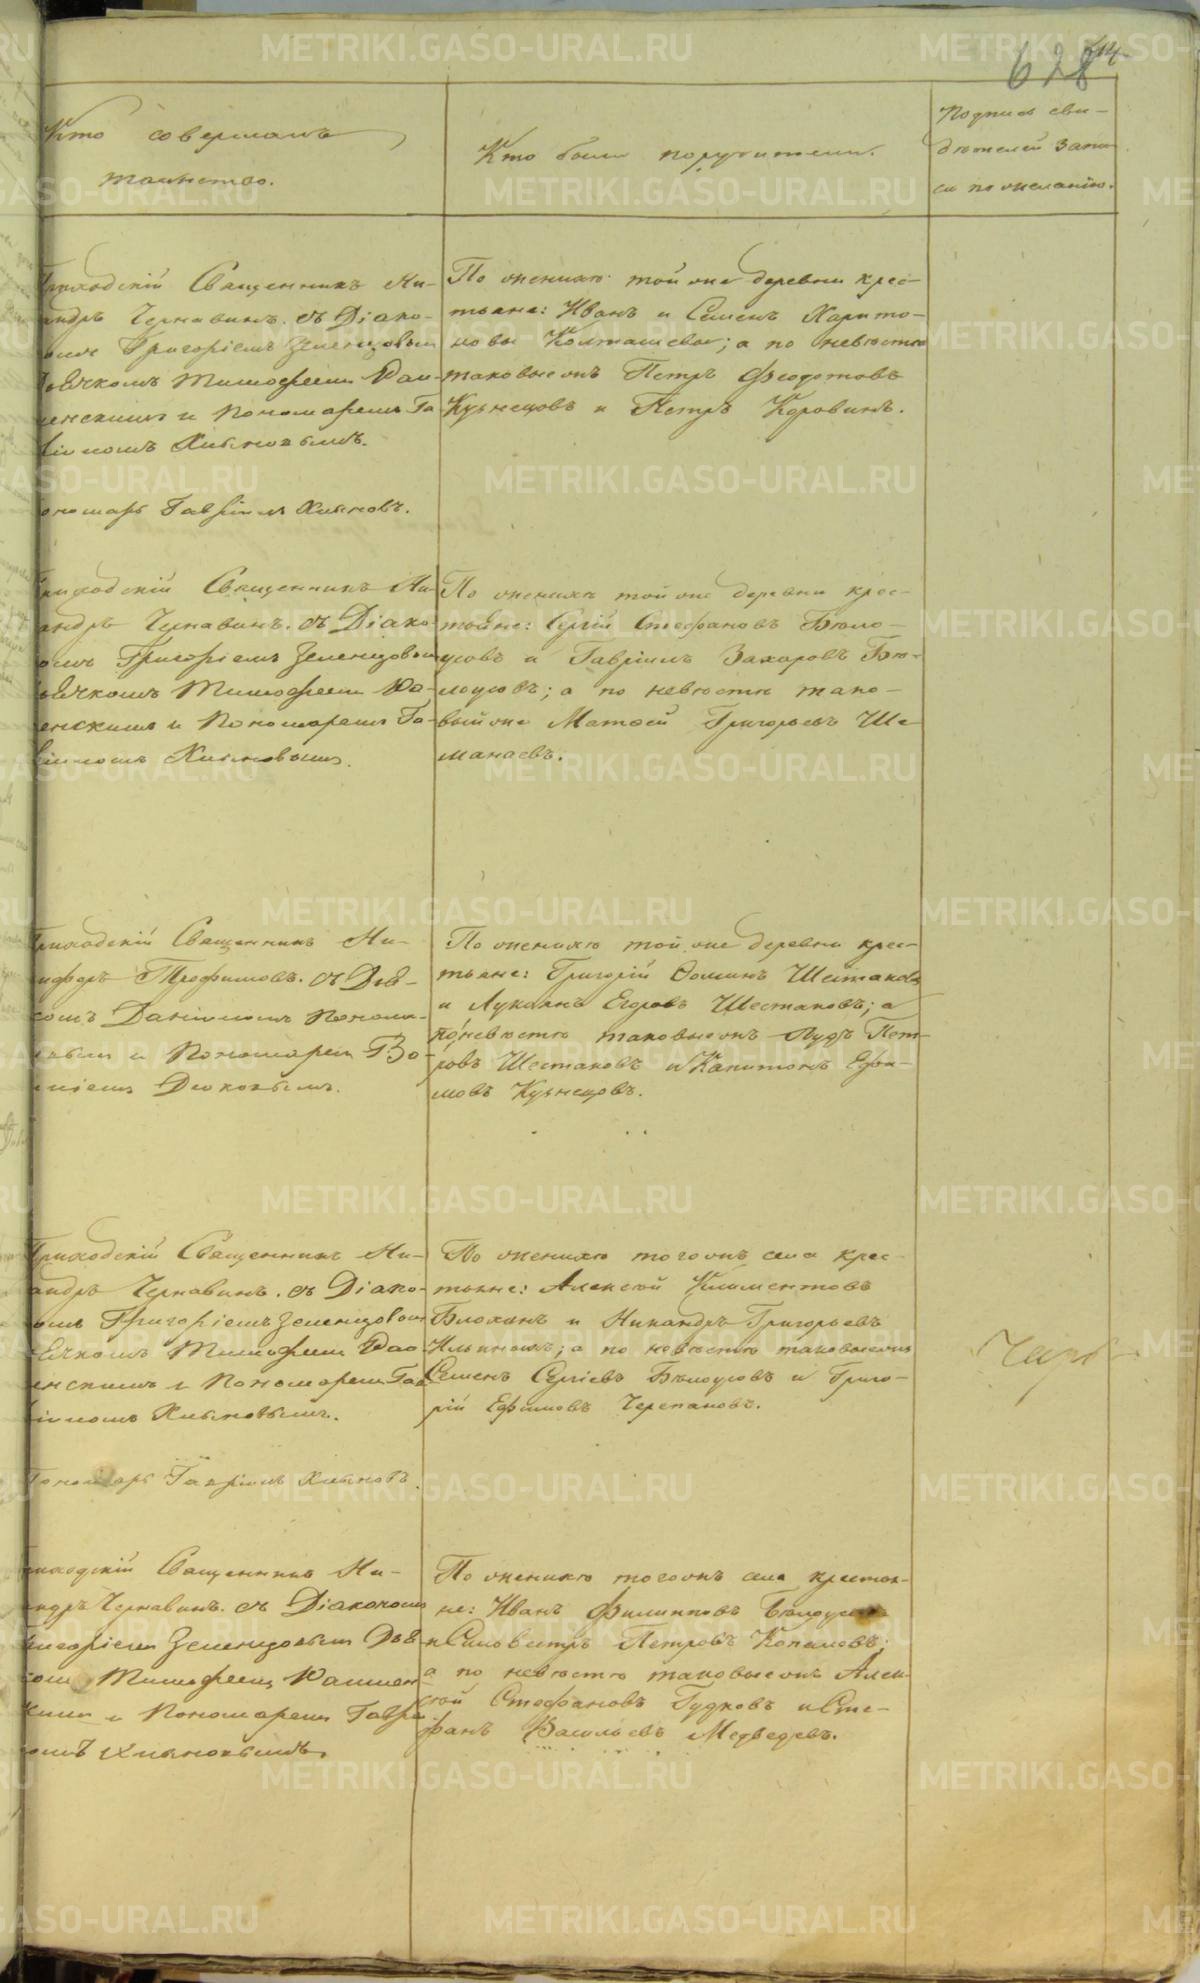 628
Кто совершалъ
таинство.
Кто были поручители.
Подписи сви-
дѣтелей запи-
си по желанію.
Приходскій Священникъ Ни-
кандръ Чернавинъ. съ Діако-
номъ Григоріемъ Зеленцовым
Дьячкомъ Тимофеем Рам-
менскимъ и Пономаремъ Га
вріиломъ Хлыновымъ.
Пономарь Гавріилъ Хлыновъ.
По женихѣ той же деревни крес-
тьяне: Иванъ и Семенъ Харито-
новы Колташевы; а по невѣстѣ
таковые жъ Петръ Феодотовъ
Кузнецовъ и Петръ Коровинъ.
Приходскій Священникъ Ни-
кандръ Чернавинъ. съ Діако-
номъ Григоріемъ Зеленцовым
Дьячкомъ Тимофеем Ра-
менскимъ и Пономаремъ Га-
вріиломъ Хлыновымъ.
По женихѣ той же деревни крес-
тьяне: Сергій Стефановъ Бѣло-
усовъ и Гавріилъ Захаровъ Бѣ-
лоусовъ; а по невѣстѣ тако-
вый же Матвей Григорьевъ Ше
манаевъ.
Приходскій Священникъ Ни-
кифоръ Трофимовъ. съ Дья-
комъ Даніиломъ Понома-
и Пономарем
По женихѣ той же деревни крес-
тьяне: Григорій Ѳоминъ Шестаковъ
и Лукіянъ Егоровъ Шестаковъ; а
по невѣстѣ таковые жъ Пет-
ровъ Шестаковъ и Капитонъ Ефи-
мовъ Кузнецовъ.
Приходскій Священникъ Ни-
кандръ Чернавинъ. съ Діако-
номъ Григоріемъ Зеленцовым
Дьячкомъ Тимофеем Рам
менскимъ и Пономаремъ Гав
ріиломъ Хлыновымъ.
Пономарь Гавріилъ Хлыновъ.
По женихѣ того жъ села крес-
тьяне: Алексѣй Климентовъ
Блохинъ и Никандръ Григорьевъ
Ильиныхъ; а по невѣстѣ таковые жъ
Семенъ Сергіевъ Бѣлоусовъ и Григо-
рій Ефимовъ Черепановъ.
Приходскій Священникъ Ни-
кандръ Чернавинъ. съ Діакономъ
Григоріемъ Зеленцовымъ Дья-
комъ Тимофеем Раммен
скимъ и Пономаремъ Гаврі-
ломъ Хлыновымъ.
По женихѣ того жъ села крестья-
не: Иванъ Филипповъ Бѣлоусовъ
и Силовестръ Петровъ Копыловъ;
а по невѣстѣ таковые жъ Алек-
сѣй Стефановъ Гудковъ и Сте-
фанъ Васильевъ Медведевъ.